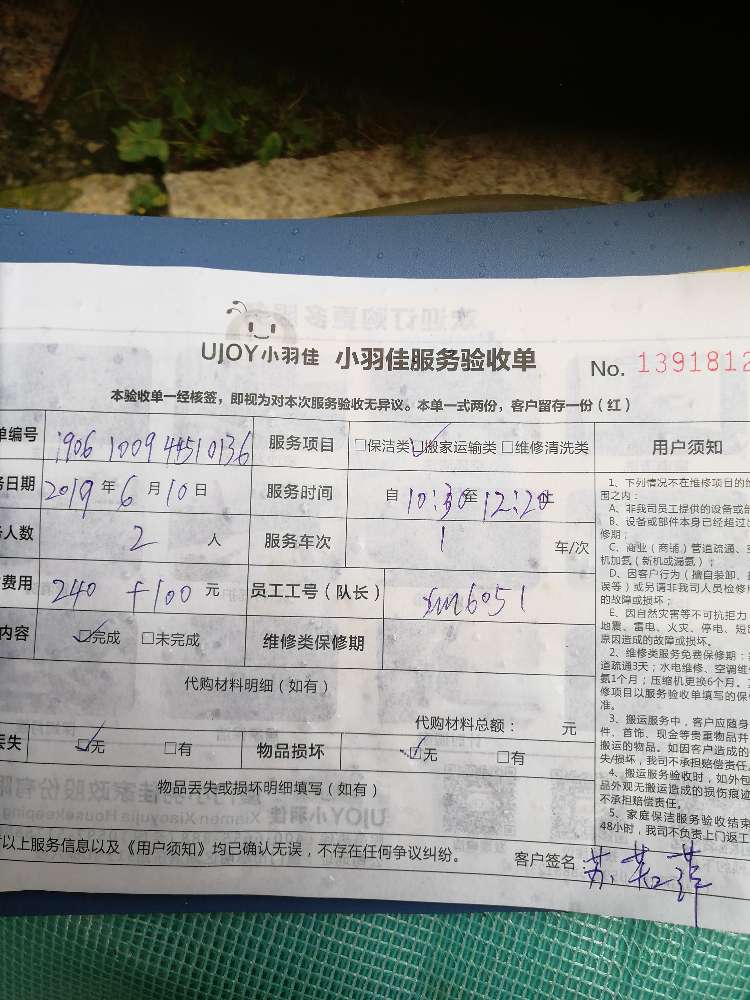 UJOY小羽佳 小羽佳服务验收单 No. 1391812
本验收单一经核签，即视为对本次服务验收无异议。本单一式两份，客户留存一份（红）
单编号 服务项目 □保洁类 ☑搬家运输类 □维修清洗类 用户须知
日期 2019年6月10日 服务时间 自10:30至12:20止
人数 2 人 服务车次 1 车/次
费用 240 +100 元 员工工号（队长） xm6051
内容 ☑完成 □未完成 维修类保修期
代购材料明细（如有）
代购材料总额： 元
丢失 ☑无 □有 物品损坏 ☑无 □有
物品丢失或损坏明细填写（如有）
以上服务信息以及《用户须知》均已确认无误，不存在任何争议纠纷。 客户签名：
1、下列情况不在维修项目的
围之内：
A、非我司员工提供的设备或
B、设备或部件本身已经超过
修期；
C、商业（商铺）管道疏通、
机加氨（新机或漏氨）；
D、因客户行为（擅自装卸、
误等）或另请非我司人员检修
的故障或损坏；
E、因自然灾害等不可抗拒力
地震、雷电、火灾、停电、短
原因造成的故障或损坏。
2、维修类服务免费保修期：
道疏通3天；水电维修、空调维
氨1个月；压缩机更换6个月。
修项目以服务验收单填写的保
准。
3、搬运服务中，客户应随身
件、首饰、现金等贵重物品并
搬运的物品。如因客户造成的
失/损坏，我司不承担赔偿责任。
4、搬运服务验收时，如外包
品外观无搬运造成的损伤痕迹
不承担赔偿责任。
5、家庭保洁服务验收结束
48小时，我司不负责上门返工